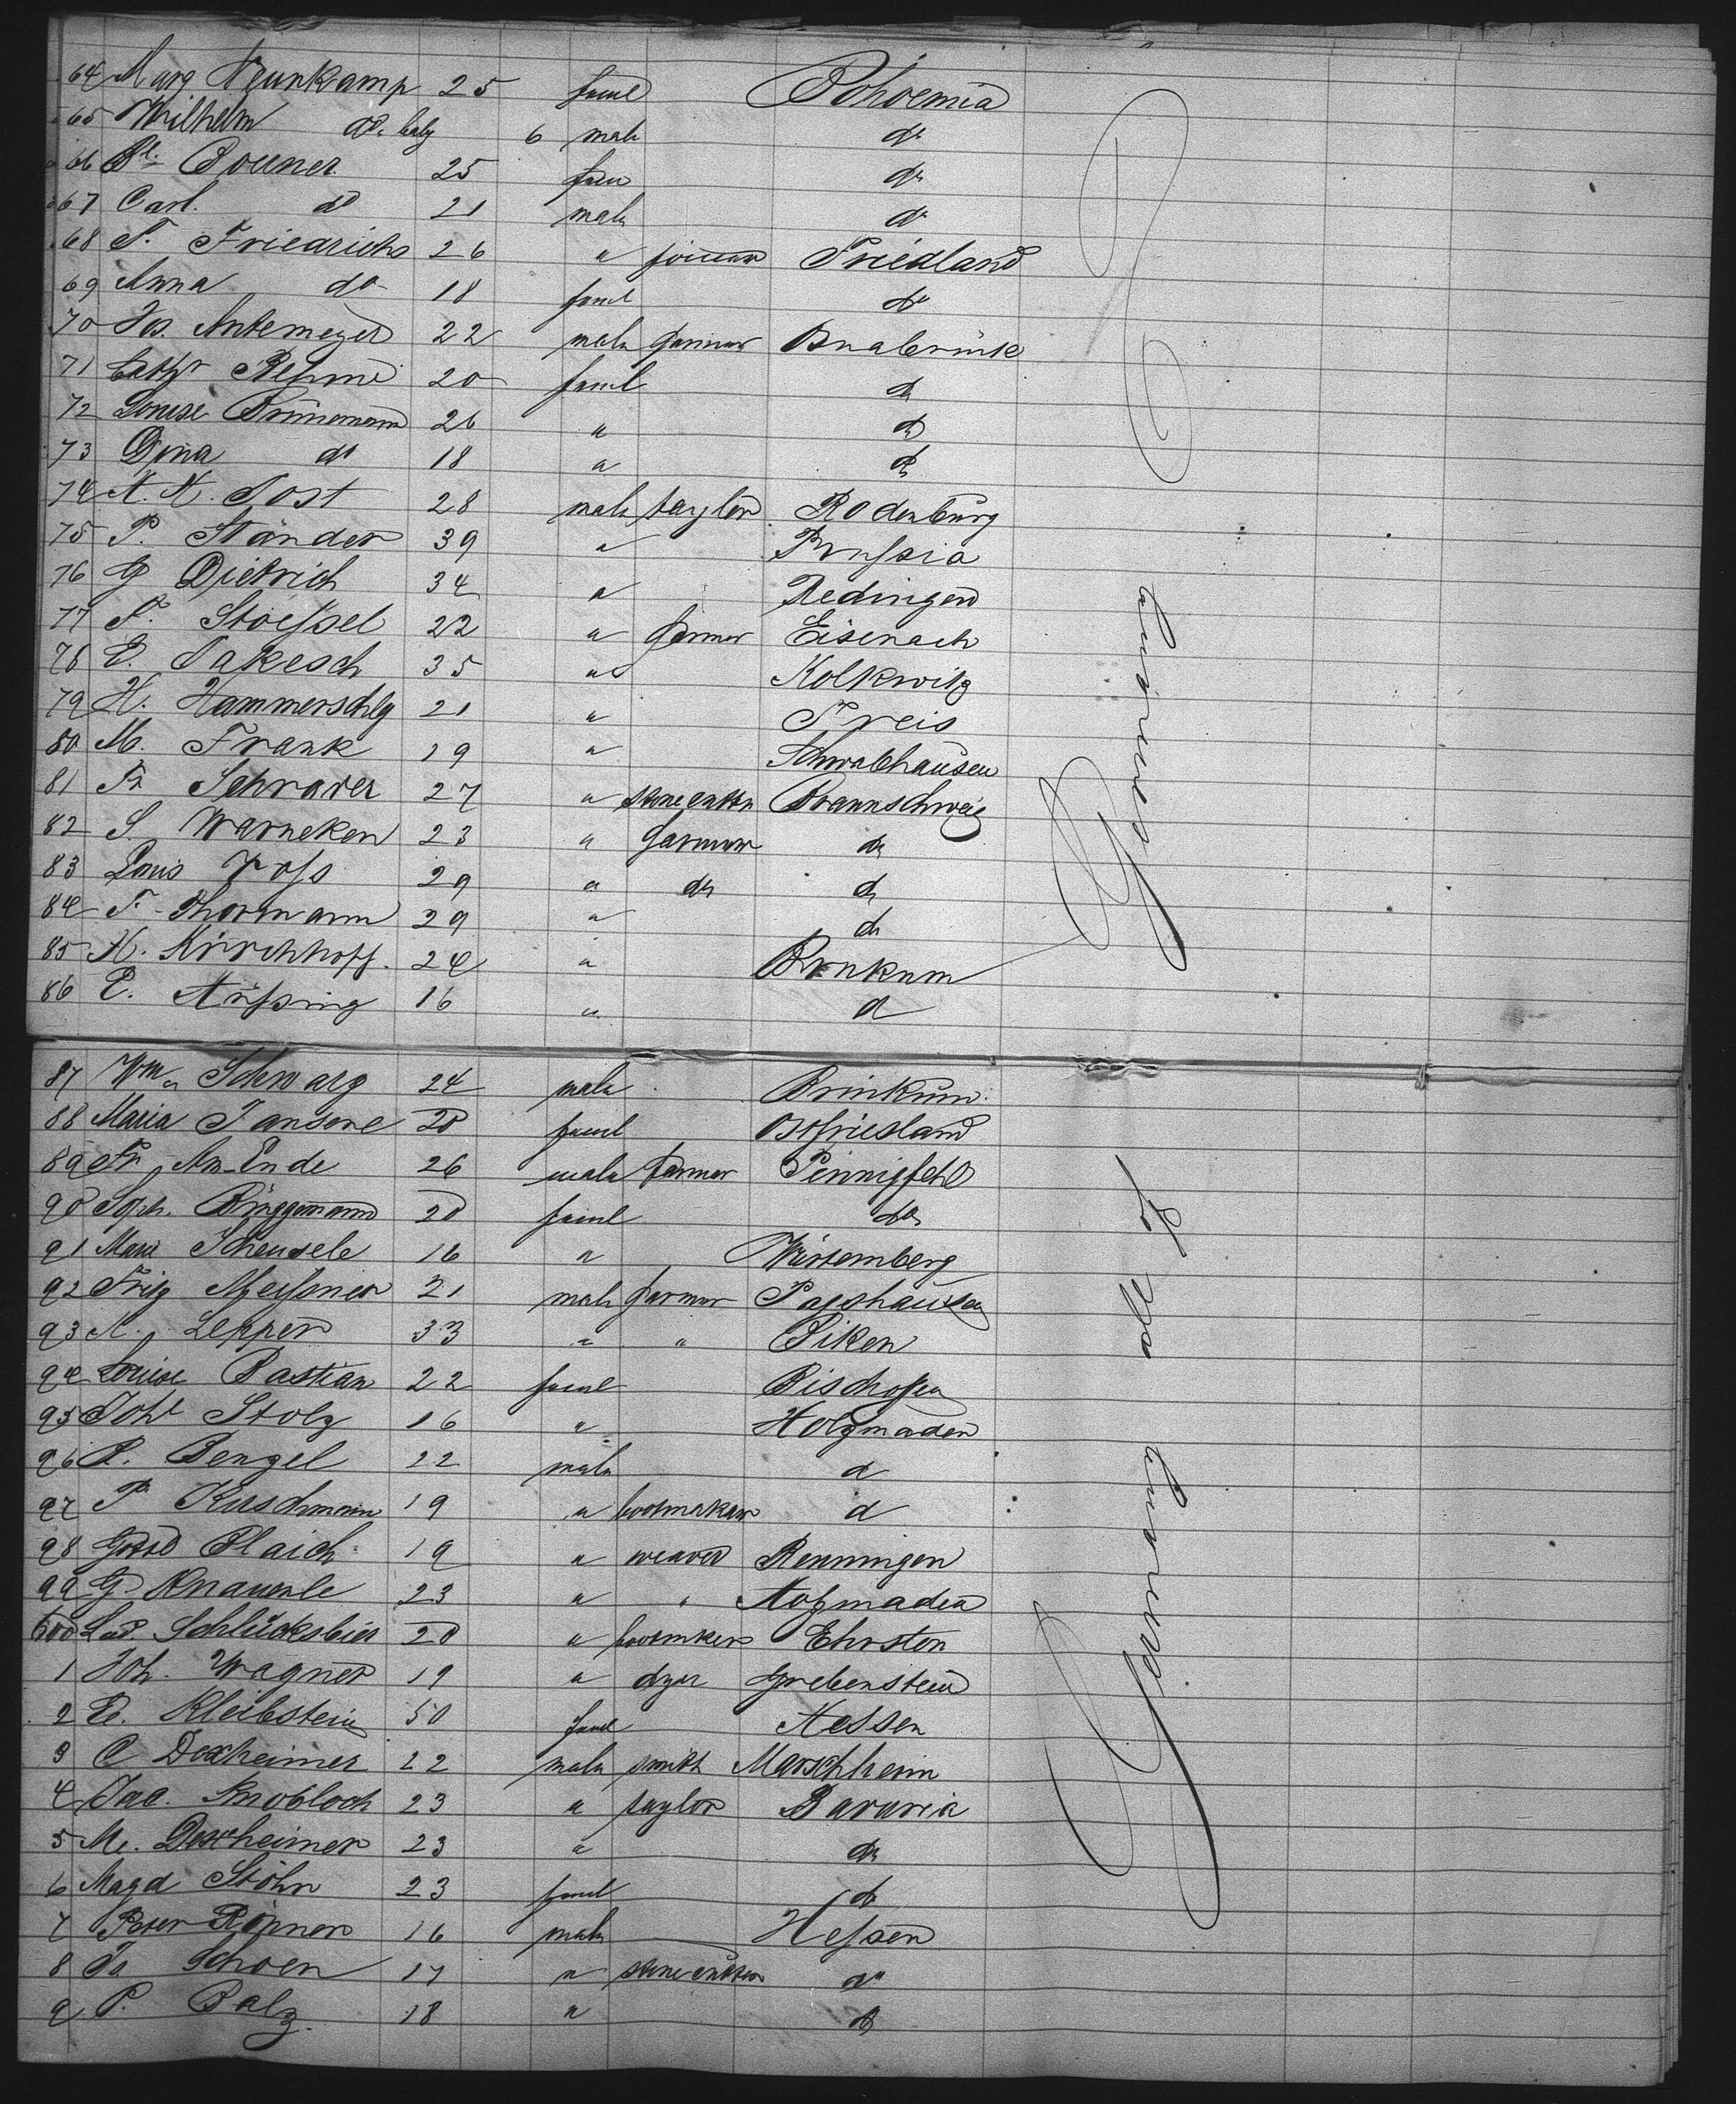 64 Marg Neunkamp 25 feml Bohoemia
65 Wilhelm do baby 6 male do
66 Bl. Bouner 25 fem do
67 Carl. do 21 male do
68 F. Friedrichs 26 " joiner Friedland
69 Anna do 18 feml do
70 Jos. Antemeyer 22 male farmer Osnabrück
71 Cathr Rehme 20 feml do
72 Louise Brünemann 26 " do
73 Dina do 18 " do
74 A. H. Jost 28 male taylor Rodenburg
75 P. Ständer 39 " Prussia
76 G Dietrich 34 " Redingen
77 F. Stoessel 22 " farmer Eisenach
78 E. Jakesch 35 " Kolkwitz
79 H. Hammerschlg 21 " Treis
80 M. Frank 19 " Schwabhausen
81 Fr Schrader 27 " stone cutter Braunschweig
82 S. Warneken 23 " farmer do
83 Louis Voss 29 " do do
84 F. Thormann 29 " do
85 H. Kirchhoff. 24 " Brnkum
86 E. Aüssing 16 " do
Germany
87 Wm. Schwarg 24 male Brinkum
88 Maria Jansene 20 feml Ostfriesland
89 Fr. Am-Ende 26 male farmer Pennigfehl
90 Soph. Brüggemann 20 feml do
91 Marie Scheufele 16 " Würtemberg
92 Fritz Meissner 21 male farmer Papshausen
93 A. Lepper 33 " " Siken
94 Louise Bastian 22 feml Bischofen
95 Joh Stolz 16 " Holzmaden
96 R. Bengel 22 male do
97 P. Kuschmann 19 " bootmaker do
98 Gottd Blaich 19 " weaver Renningen
99 G Knauerle 23 " " Holzmaden
600 Lud Schlücksbier 20 " bootmker Ehrsten
1 Joh. Wagner 19 " dyer Grebenstein
2 E. Kleibstein 50 feml Hessen
3 C Dexheimer 22 male smith Marschheim
4 Jac. Knobloch 23 " taylor Bavaria
5 M. Dexheimer 23 " do
6 Magd Stöhr 23 feml do
7 Peter Römer 16 male Hessen
8 Ja Schoen 17 " stone cutter do
9 P. Balz. 18 " do
Germany